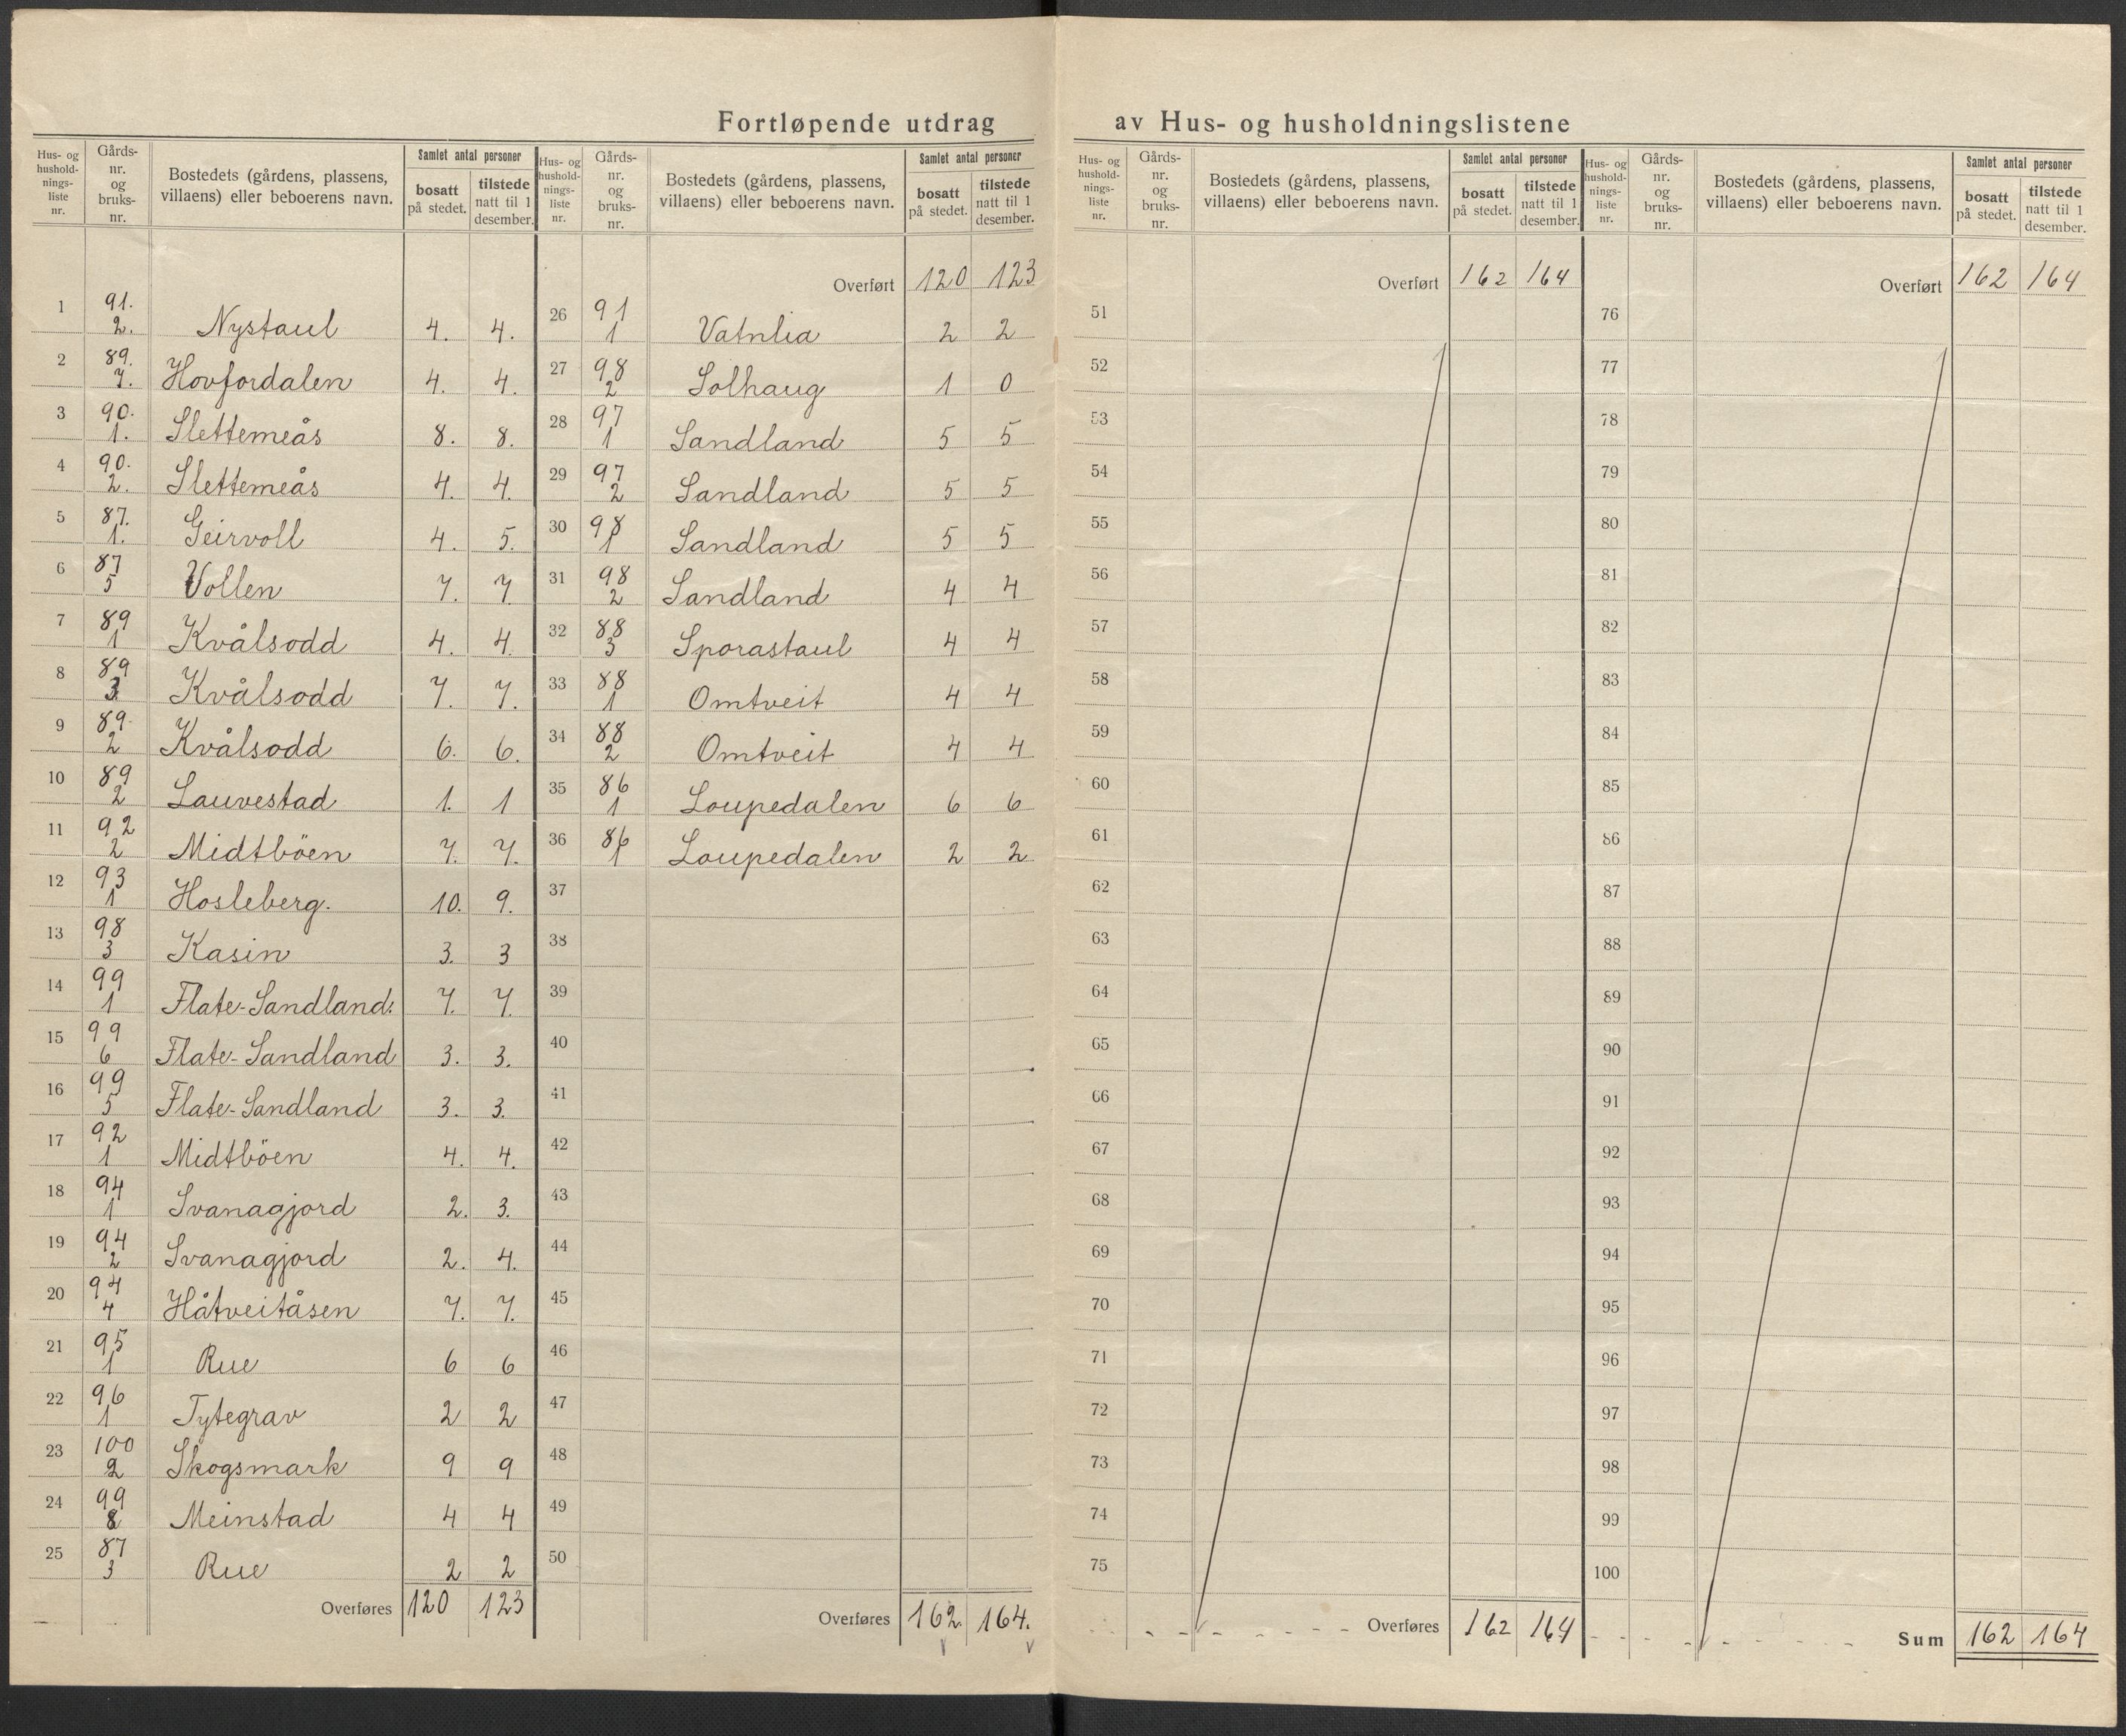 Fortløpende utdrag av Hus- og husholdningslistene
Hus- og hushold- nings- liste nr. | Gårds- nr. og bruks- nr. | Bostedets (gårdens, plassens, villaens) eller beboerens navn. | Samlet antal personer bosatt på stedet. | tilstede natt til 1 desember.
1 | 91. 2. | Nystaul | 4. | 4.
2 | 89. 7. | Hovfordalen | 4. | 4.
3 | 90. 1. | Slettemeås | 8. | 8.
4 | 90. 2. | Slettemeås | 4. | 4.
5 | 87. 1. | Geirvoll | 4. | 5.
6 | 87 5 | Vollen | 7. | 7.
7 | 89 1 | Kvålsodd | 4. | 4.
8 | 89 3 | Kvålsodd | 7. | 7.
9 | 89. 2 | Kvålsodd | 6. | 6.
10 | 89 2 | Lauvestad | 1. | 1
11 | 92 2 | Midtböen | 7. | 7.
12 | 93 1 | Hosleberg. | 10. | 9.
13 | 98 3 | Kasin | 3. | 3
14 | 99 1 | Flate-Sandland. | 7. | 7.
15 | 99 6 | Flate-Sandland | 3. | 3.
16 | 99 5 | Flate-Sandland | 3. | 3.
17 | 92 1 | Midtböen | 4. | 4.
18 | 94 1 | Svanagjord | 2. | 3.
19 | 94 2 | Svanagjord | 2. | 4.
20 | 94 4 | Håtveitåsen | 7. | 7.
21 | 95 1 | Rue | 6 | 6
22 | 96 1 | Tytegrav | 2 | 2
23 | 100 2 | Skogsmark | 9 | 9
24 | 99 8 | Meinstad | 4 | 4
25 | 87 3 | Rue | 2 | 2
Overføres 120 123
Hus- og hushold- nings- liste nr. | Gårds- nr. og bruks- nr. | Bostedets (gårdens, plassens, villaens) eller beboerens navn. | Samlet antal personer bosatt på stedet. | tilstede natt til 1 desember.
Overført 120 123
26 | 91 1 | Vatnlia | 2 | 2
27 | 98 2 | Solhaug | 1 | 0
28 | 97 1 | Sandland | 5 | 5
29 | 97 2 | Sandland | 5 | 5
30 | 98 1 | Sandland | 5 | 5
31 | 98 2 | Sandland | 4 | 4
32 | 88 3 | Sporastaul | 4 | 4
33 | 88 1 | Omtveit | 4 | 4
34 | 88 2 | Omtveit | 4 | 4
35 | 86 1 | Loupedalen | 6 | 6
36 | 86 1 | Loupedalen | 2 | 2
37
38
39
40
41
42
43
44
45
46
47
48
49
50
Overføres 162. 164.
Hus- og hushold- nings- liste nr. | Gårds- nr. og bruks- nr. | Bostedets (gårdens, plassens, villaens) eller beboerens navn. | Samlet antal personer bosatt på stedet. | tilstede natt til 1 desember.
Overført 162 164
51
52
53
54
55
56
57
58
59
60
61
62
63
64
65
66
67
68
69
70
71
72
73
74
75
Overføres 162 164
Hus- og hushold- nings- liste nr. | Gårds- nr. og bruks- nr. | Bostedets (gårdens, plassens, villaens) eller beboerens navn. | Samlet antal personer bosatt på stedet. | tilstede natt til 1 desember.
Overført 162 164
76
77
78
79
80
81
82
83
84
85
86
87
88
89
90
91
92
93
94
95
96
97
98
99
100
Sum 162 164